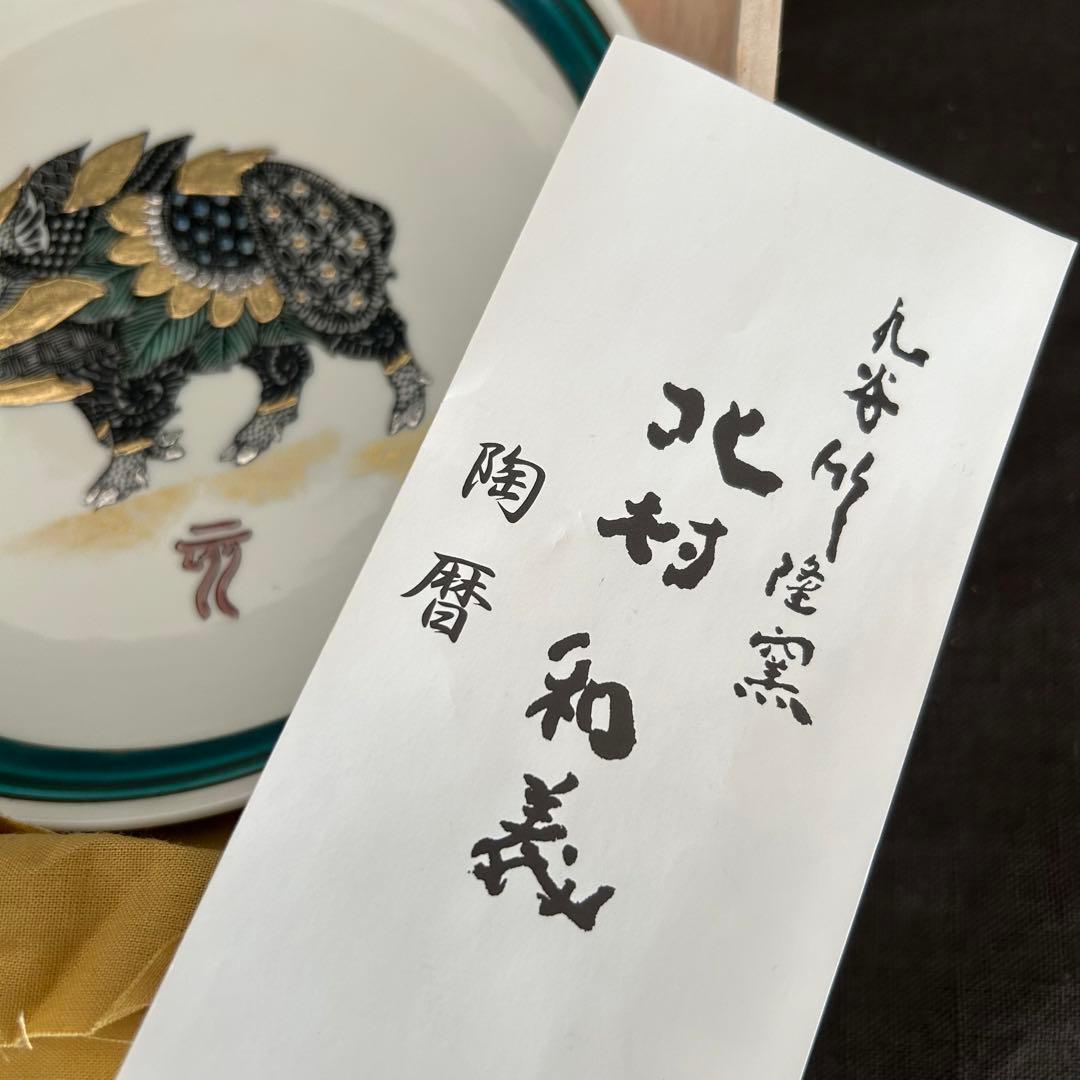 九谷竹隆窯
北村和義
陶暦
元